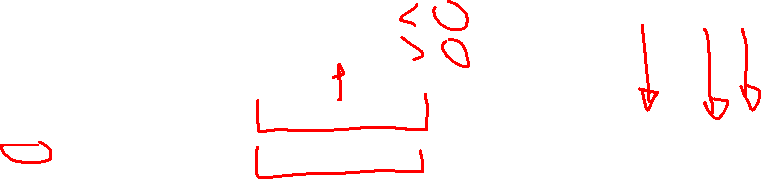 < 0
> 0